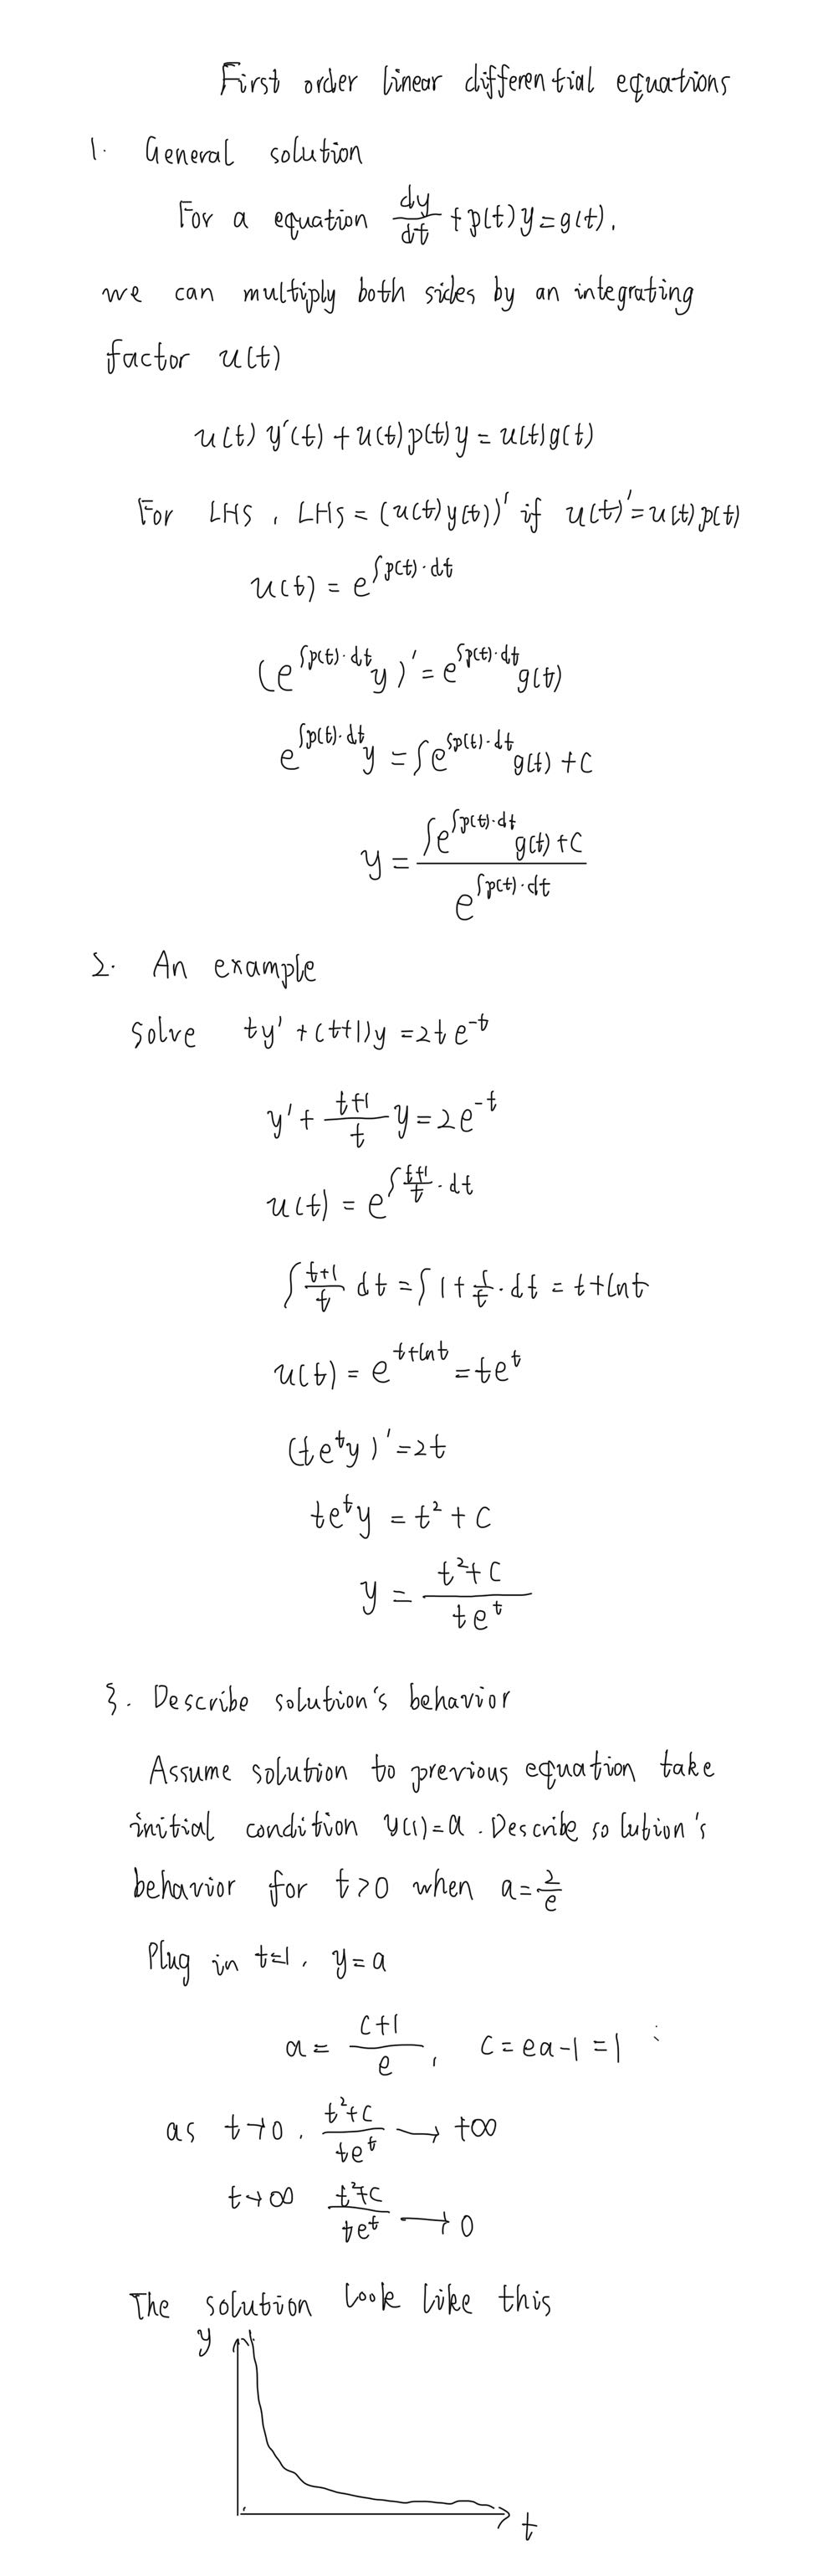 First order linear differential equations
1. General solution
For a equation dy/dt + p(t)y = g(t),
we can multiply both sides by an integrating
factor u(t)
u(t) y'(t) + u(t)p(t)y = u(t)g(t)
For LHS, LHS = (u(t)y(t))' if u(t)' = u(t)p(t)
u(t) = e^{∫p(t)·dt}
(e^{∫p(t)·dt} y)' = e^{∫p(t)·dt} g(t)
e^{∫p(t)·dt} y = ∫e^{∫p(t)·dt} g(t) + C
y = (∫e^{∫p(t)·dt} g(t) + C) / e^{∫p(t)·dt}
2. An example
Solve ty' + (t+1)y = 2te^{-t}
y' + (t+1)/t y = 2e^{-t}
u(t) = e^{∫(t+1)/t · dt}
∫(t+1)/t dt = ∫1 + 1/t · dt = t + ln t
u(t) = e^{t+ln t} = te^t
(te^t y)' = 2t
te^t y = t² + C
y = (t² + C) / (te^t)
3. Describe solution's behavior
Assume solution to previous equation take
initial condition y(1) = a. Describe solution's
behavior for t>0 when a = 2/e
Plug in t=1, y=a
a = (C+1)/e, C = ea-1 = 1
as t→0, (t²+C)/(te^t) → +∞
t→∞ (t²+C)/(te^t) → 0
The solution look like this
y
t